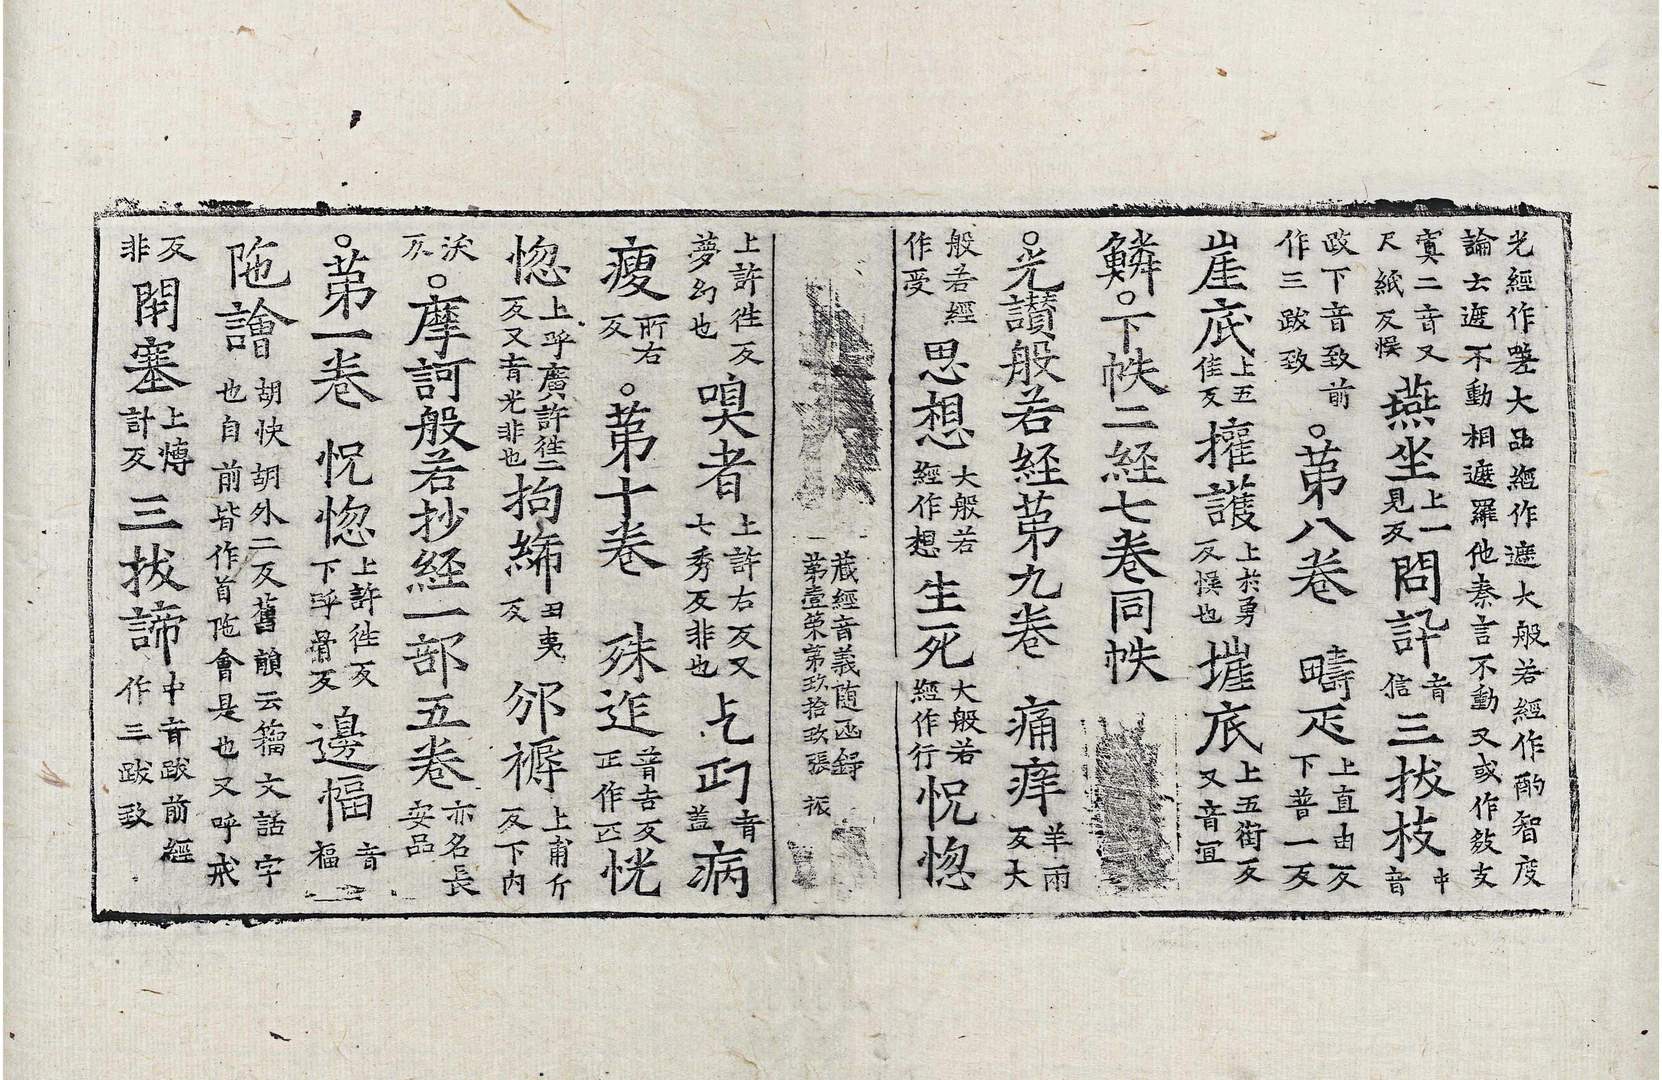 光經作㘑大品經作遮大般若經作酌智度
論士遮不動相遮羅他秦言不動又或作敍支
寘二音又
尺紙反悮
燕坐
上一
見反
問訊
音
信
三拔枝
中
音
跋下音致前
作三跋致
○第八卷
疇𠯁
上直由反
下普一反
崖底
上五
佳反
擁護
上於勇
反悮也
𡏖底
上五街反
又音宜
鱗○下帙二經七卷同帙
○光讃般若經第九卷
痛痒
羊雨
反大
般若經
作受
思想
大般若
經作想
生死
大般若
經作行
怳惚
藏經音義随函録
第壹策第玖拾玖張 振
上許徃反
夢幻也
嗅者
上許右反又
七秀反非也
乞匃
音
蓋
病
瘦
所右
反
○第十卷
殊迮
普吉反
正作匹
恍
惚
上呼廣許徃二
反又音光非也
拘絺
丑夷
反
邠䅶
上甫斤
反下内
沃
反
○摩訶般若抄經一部五卷
亦名長
安品
○第一卷
怳惚
上許徃反
下呼骨反
邊幅
音
福
陁譮
胡快胡外二反舊韻云籀文話字
也自前皆作首陁會是也又呼戒
反
非
閇塞
上愽
計反
三拔諦
中音跋前經
作三跋致